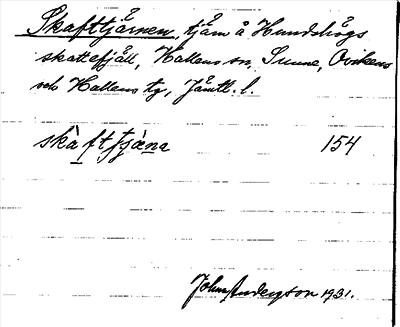 Skafttjärnen, tjärn å Hundshögs
skattefjäll, Hallens sn, Sunne, Ovikens
och Hallens tg, Jämtl. l.
skàftjạ̀na 154
Johns Andersson 1931.